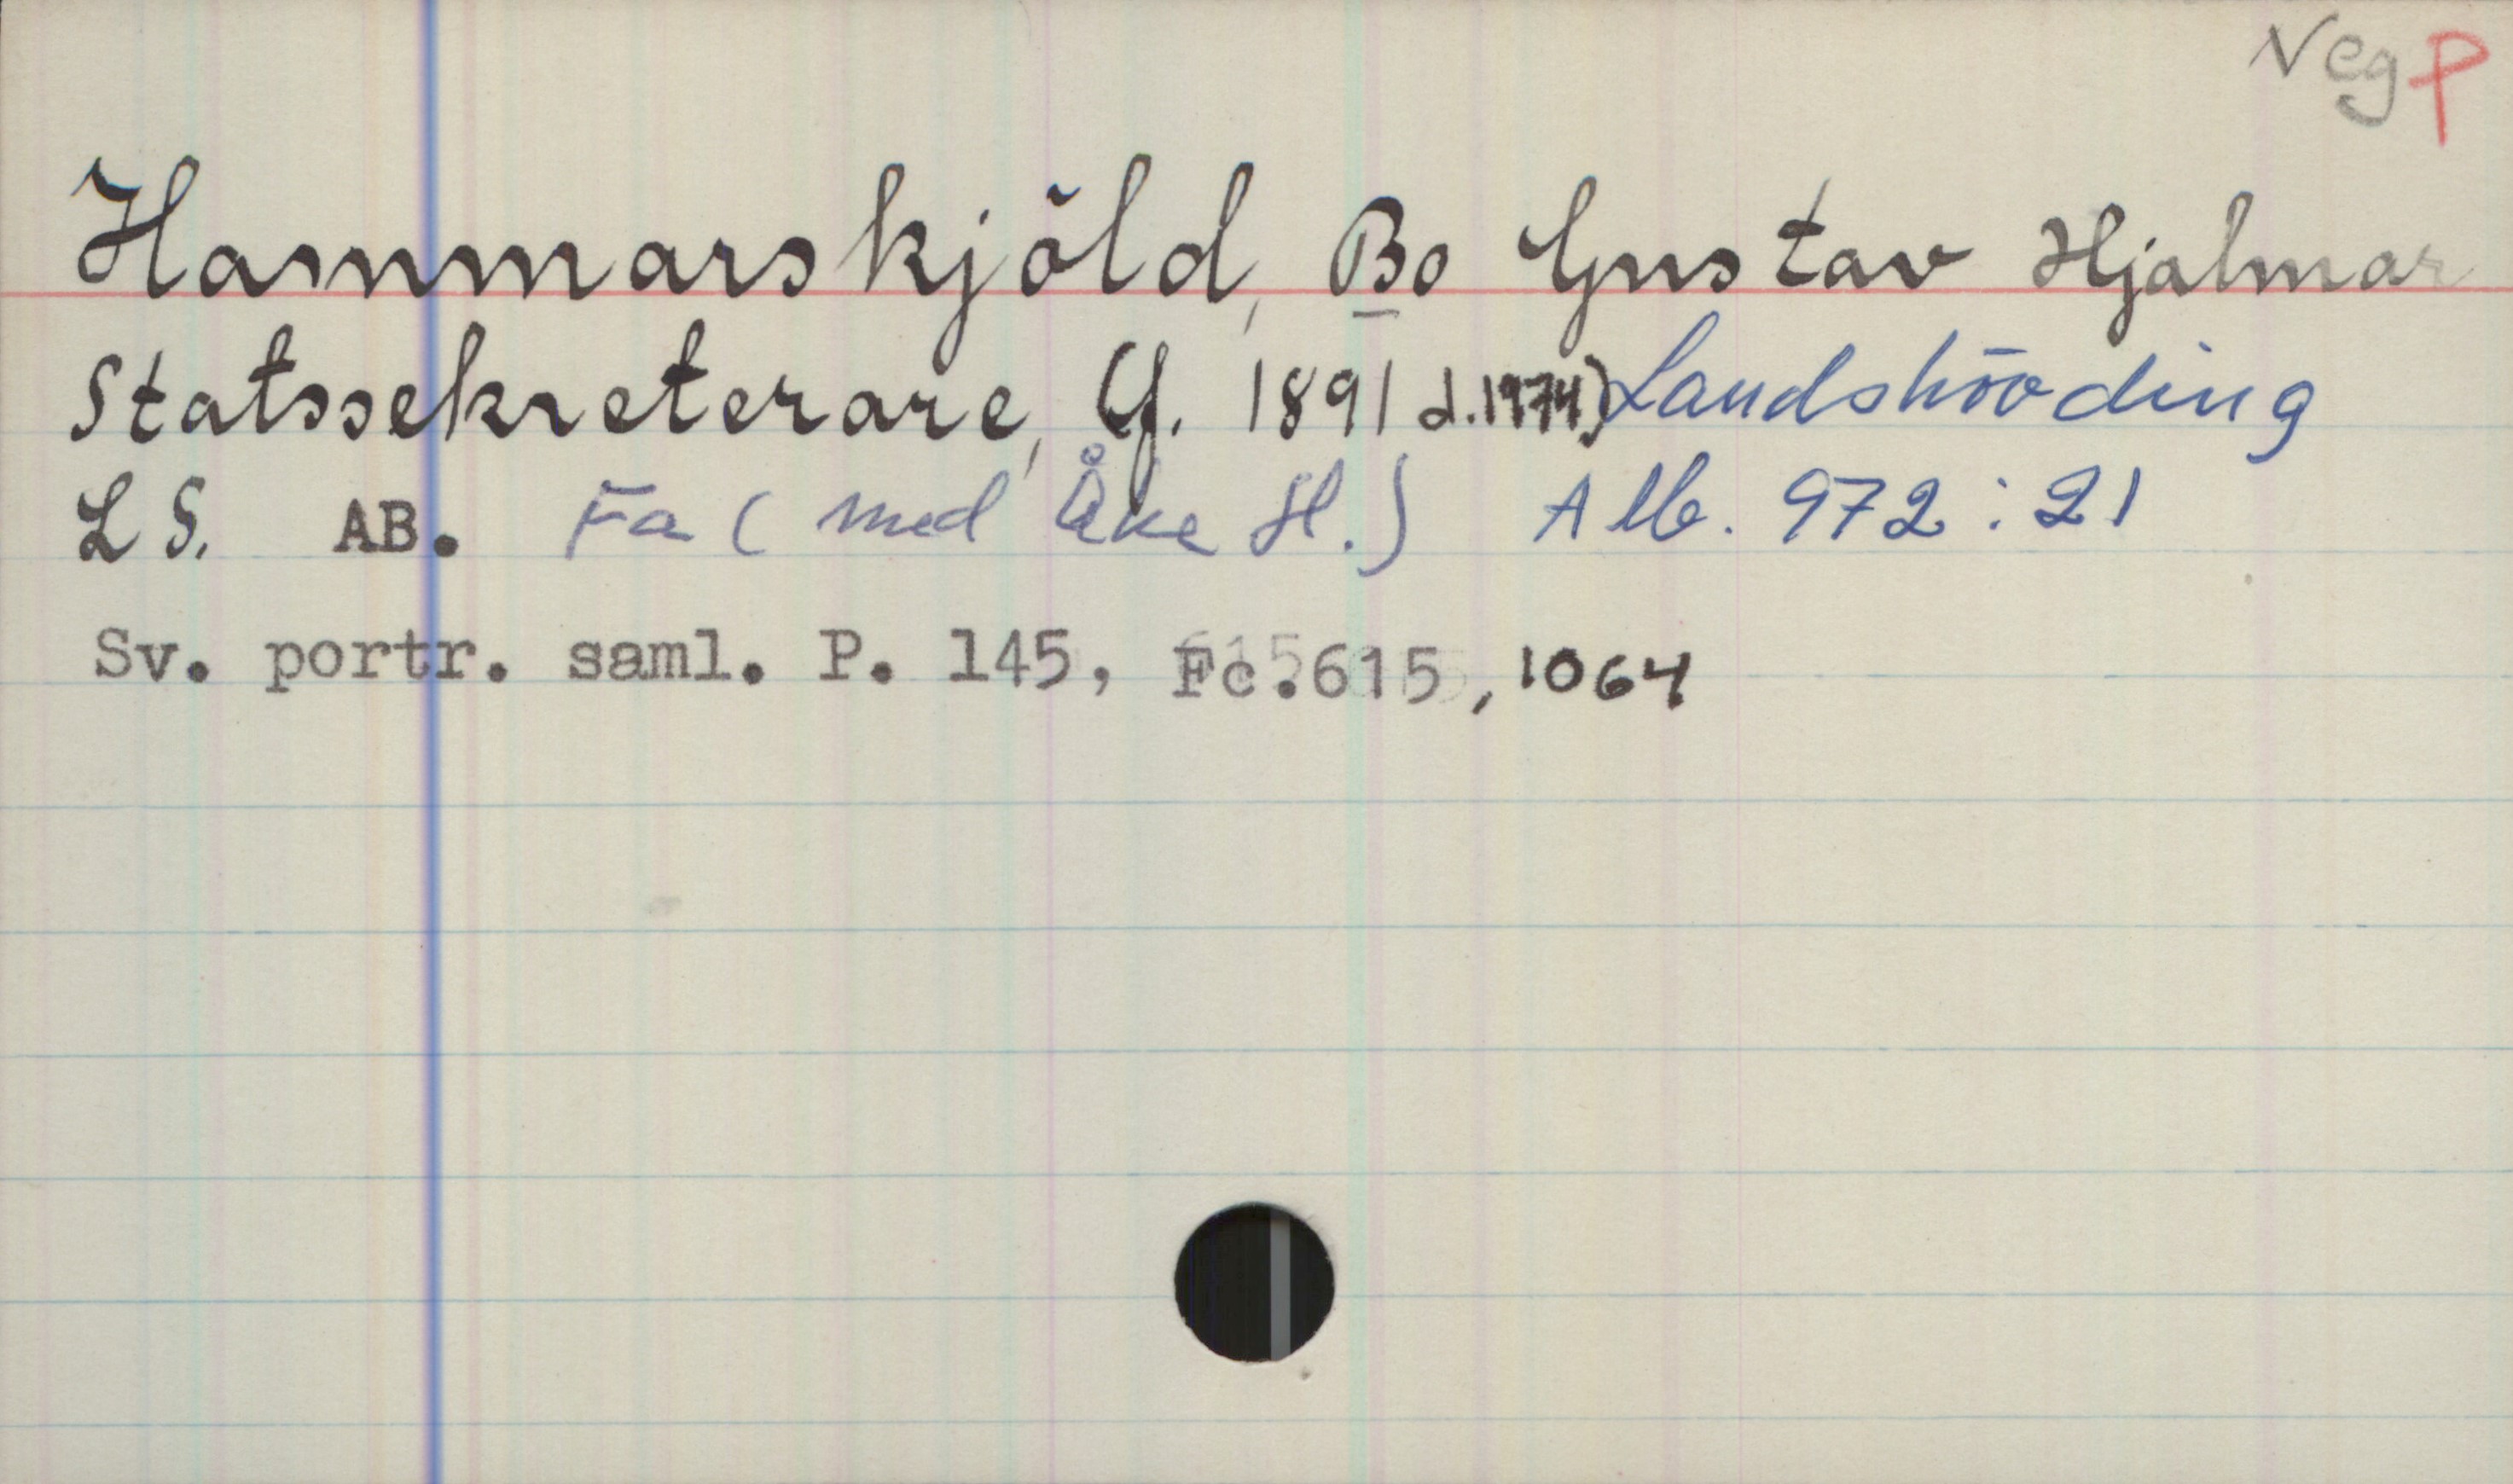 Neg P
Hammarskjöld, Bo Gustav Hjalmar
Statssekreterare, (f. 1891 d.1974) Landshövding
L S. AB. Fa (med Åke H.) Alb. 972:21
Sv. portr. saml. P. 145, Fc.615, 1064